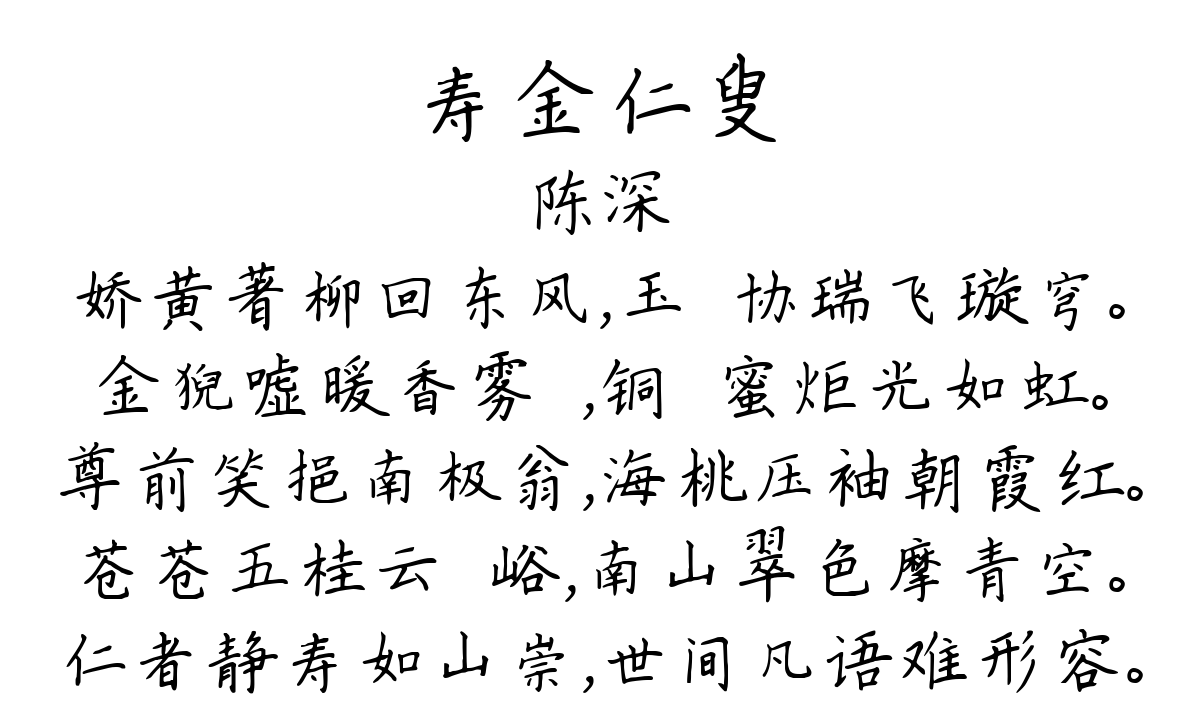 寿金仁叟
陈深
娇黄著柳回东风,玉 协瑞飞璇穹。
金猊嘘暖香雾 ,铜 蜜炬光如虹。
尊前笑挹南极翁,海桃压袖朝霞红。
苍苍五桂云 峪,南山翠色摩青空。
仁者静寿如山崇,世间凡语难形容。